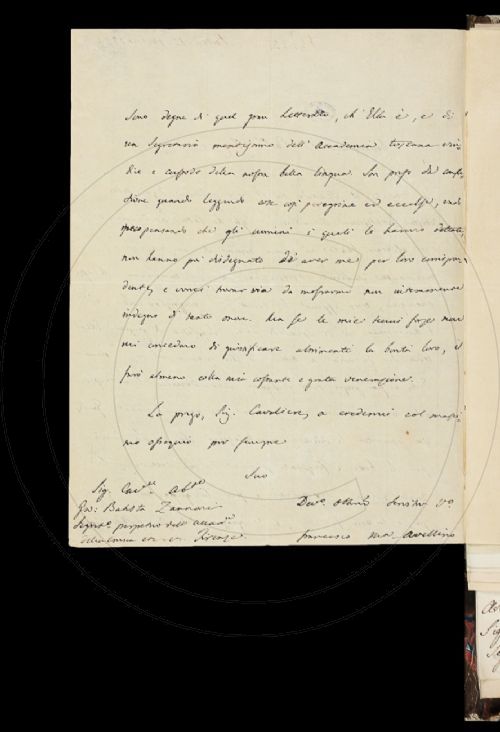 sono degne di quel gran Letterato, ch' Ella è, e di
un Segretario meritissimo dell' Accademia toscana
die e custode della nostra bella lingua. Son preso da confu-
sione quando leggendo cose così peregrine ed eccelse, vado
pensando che gli uomini i quali le hanno dettate,
non hanno poi disdegnato di aver me per loro corrispon-
dente, e vorrei trovar via da mostrarmi non interamente
indegno di tanto onore. Ma se le mie tenui forze non
mi concedono di giustificare altrimenti la bontà loro, il
farò almeno colla mia costante e grata venerazione.
La prego, Sig. Cavaliere, a credermi col massi-
mo ossequio per sempre
Suo
Sig. Cav.re Ab.te
Gio: Batista Zannoni
Segret.o perpetuo dell' Accad.a
della Crusca Firenze
Dev.o Obbl.o Servitor V.o
Francesco M.a Avellino